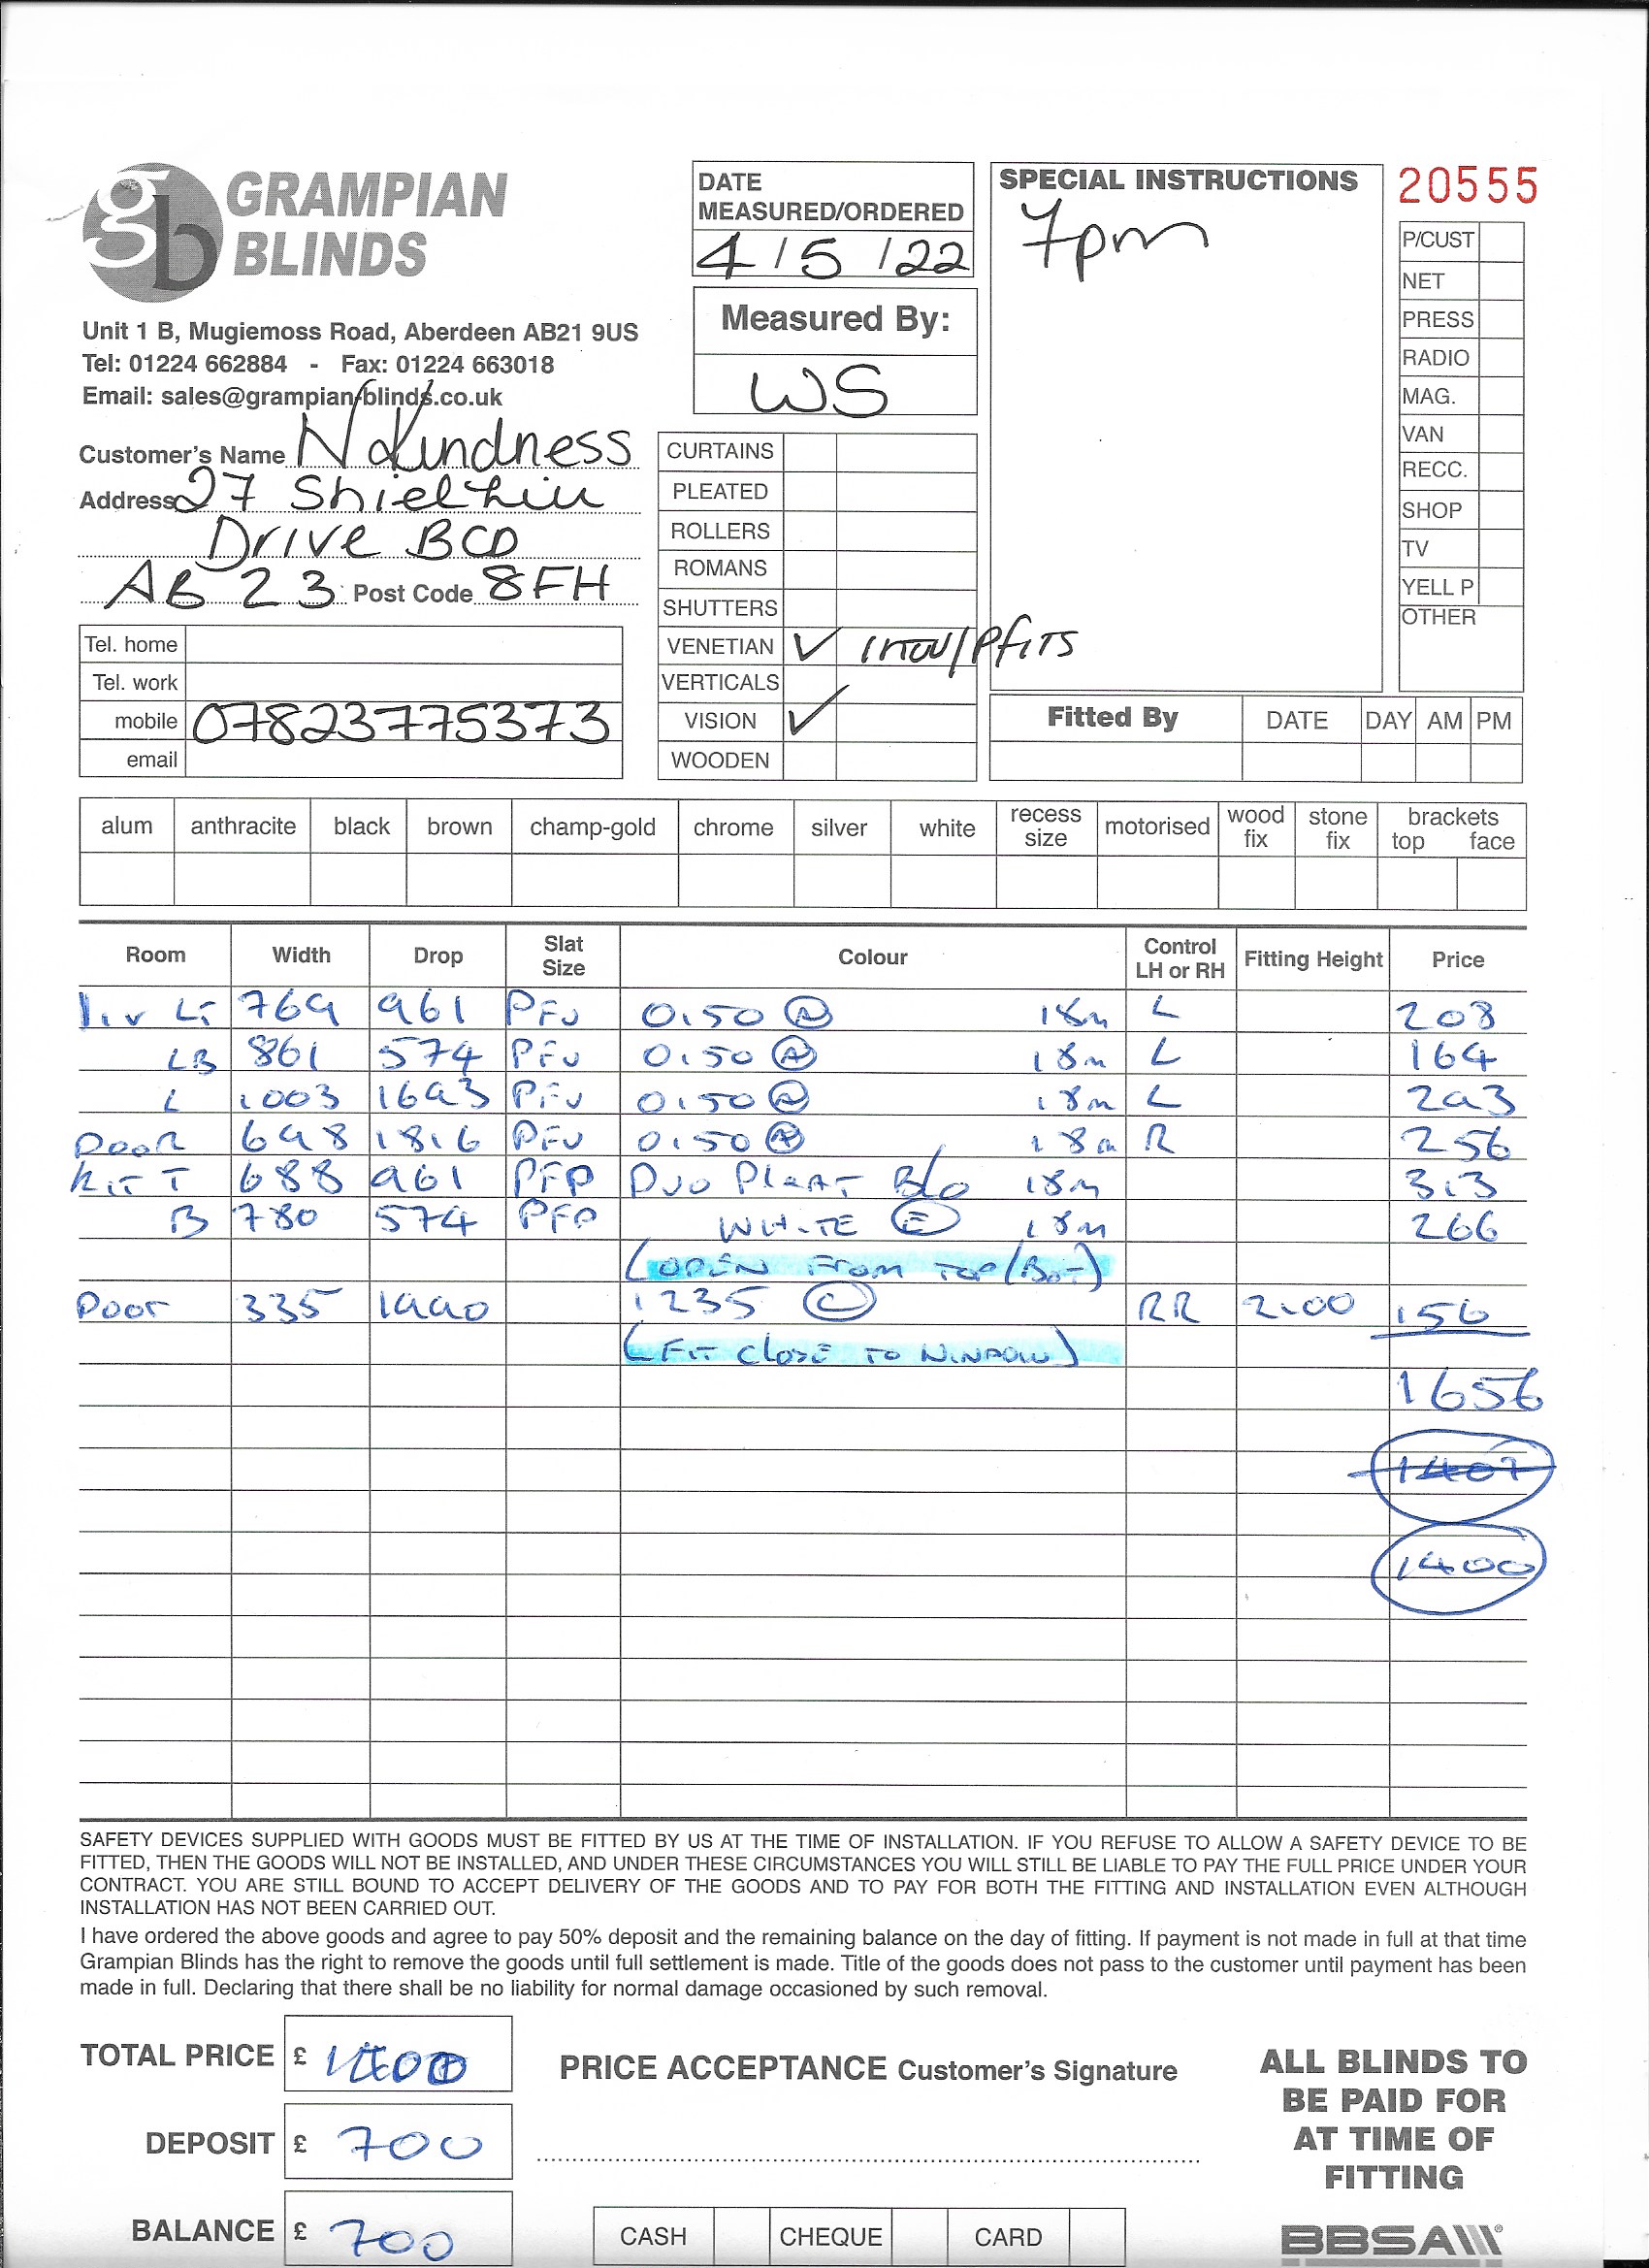 GRAMPIAN
BLINDS
Unit 1 B, Mugiemoss Road, Aberdeen AB21 9US
Tel: 01224 662884 - Fax: 01224 663018
Email: sales@grampian-blinds.co.uk
DATE
MEASURED/ORDERED
4 / 5 / 22
Measured By:
WS
SPECIAL INSTRUCTIONS
7pm
20555
P/CUST
NET
PRESS
RADIO
MAG.
VAN
RECC.
SHOP
TV
YELL P
OTHER
Customer's Name N Kindness
Address 27 Shielhill
Drive BOD
AB 23 Post Code 8FH
Tel. home
Tel. work
mobile 07823775373
email
CURTAINS
PLEATED
ROLLERS
ROMANS
SHUTTERS
VENETIAN ✓ INTU/Pfits
VERTICALS
VISION ✓
WOODEN
Fitted By DATE DAY AM PM
alum anthracite black brown champ-gold chrome silver white recess size motorised wood fix stone fix brackets top face
Room Width Drop Slat Size Colour Control LH or RH Fitting Height Price
Liv LT 769 961 PFV 0150 A 18m L 208
LB 861 574 PFV 0150 A 18m L 164
L 1003 1693 PFV 0150 A 18m L 293
Door 698 1816 PFV 0150 A 18m R 256
Kit T 688 961 PFP Duo Pleat B/O 18m 313
B 780 574 PFP WHITE E 18m 266
(OPEN FROM TOP/BOT)
Door 335 1990 1235 C RR 2.00 156
(FIT CLOSE TO WINDOW)
1656
1407
1400
SAFETY DEVICES SUPPLIED WITH GOODS MUST BE FITTED BY US AT THE TIME OF INSTALLATION. IF YOU REFUSE TO ALLOW A SAFETY DEVICE TO BE
FITTED, THEN THE GOODS WILL NOT BE INSTALLED, AND UNDER THESE CIRCUMSTANCES YOU WILL STILL BE LIABLE TO PAY THE FULL PRICE UNDER YOUR
CONTRACT. YOU ARE STILL BOUND TO ACCEPT DELIVERY OF THE GOODS AND TO PAY FOR BOTH THE FITTING AND INSTALLATION EVEN ALTHOUGH
INSTALLATION HAS NOT BEEN CARRIED OUT.
I have ordered the above goods and agree to pay 50% deposit and the remaining balance on the day of fitting. If payment is not made in full at that time
Grampian Blinds has the right to remove the goods until full settlement is made. Title of the goods does not pass to the customer until payment has been
made in full. Declaring that there shall be no liability for normal damage occasioned by such removal.
TOTAL PRICE £ 1400
DEPOSIT £ 700
BALANCE £ 700
PRICE ACCEPTANCE Customer's Signature
CASH CHEQUE CARD
ALL BLINDS TO
BE PAID FOR
AT TIME OF
FITTING
BBSA